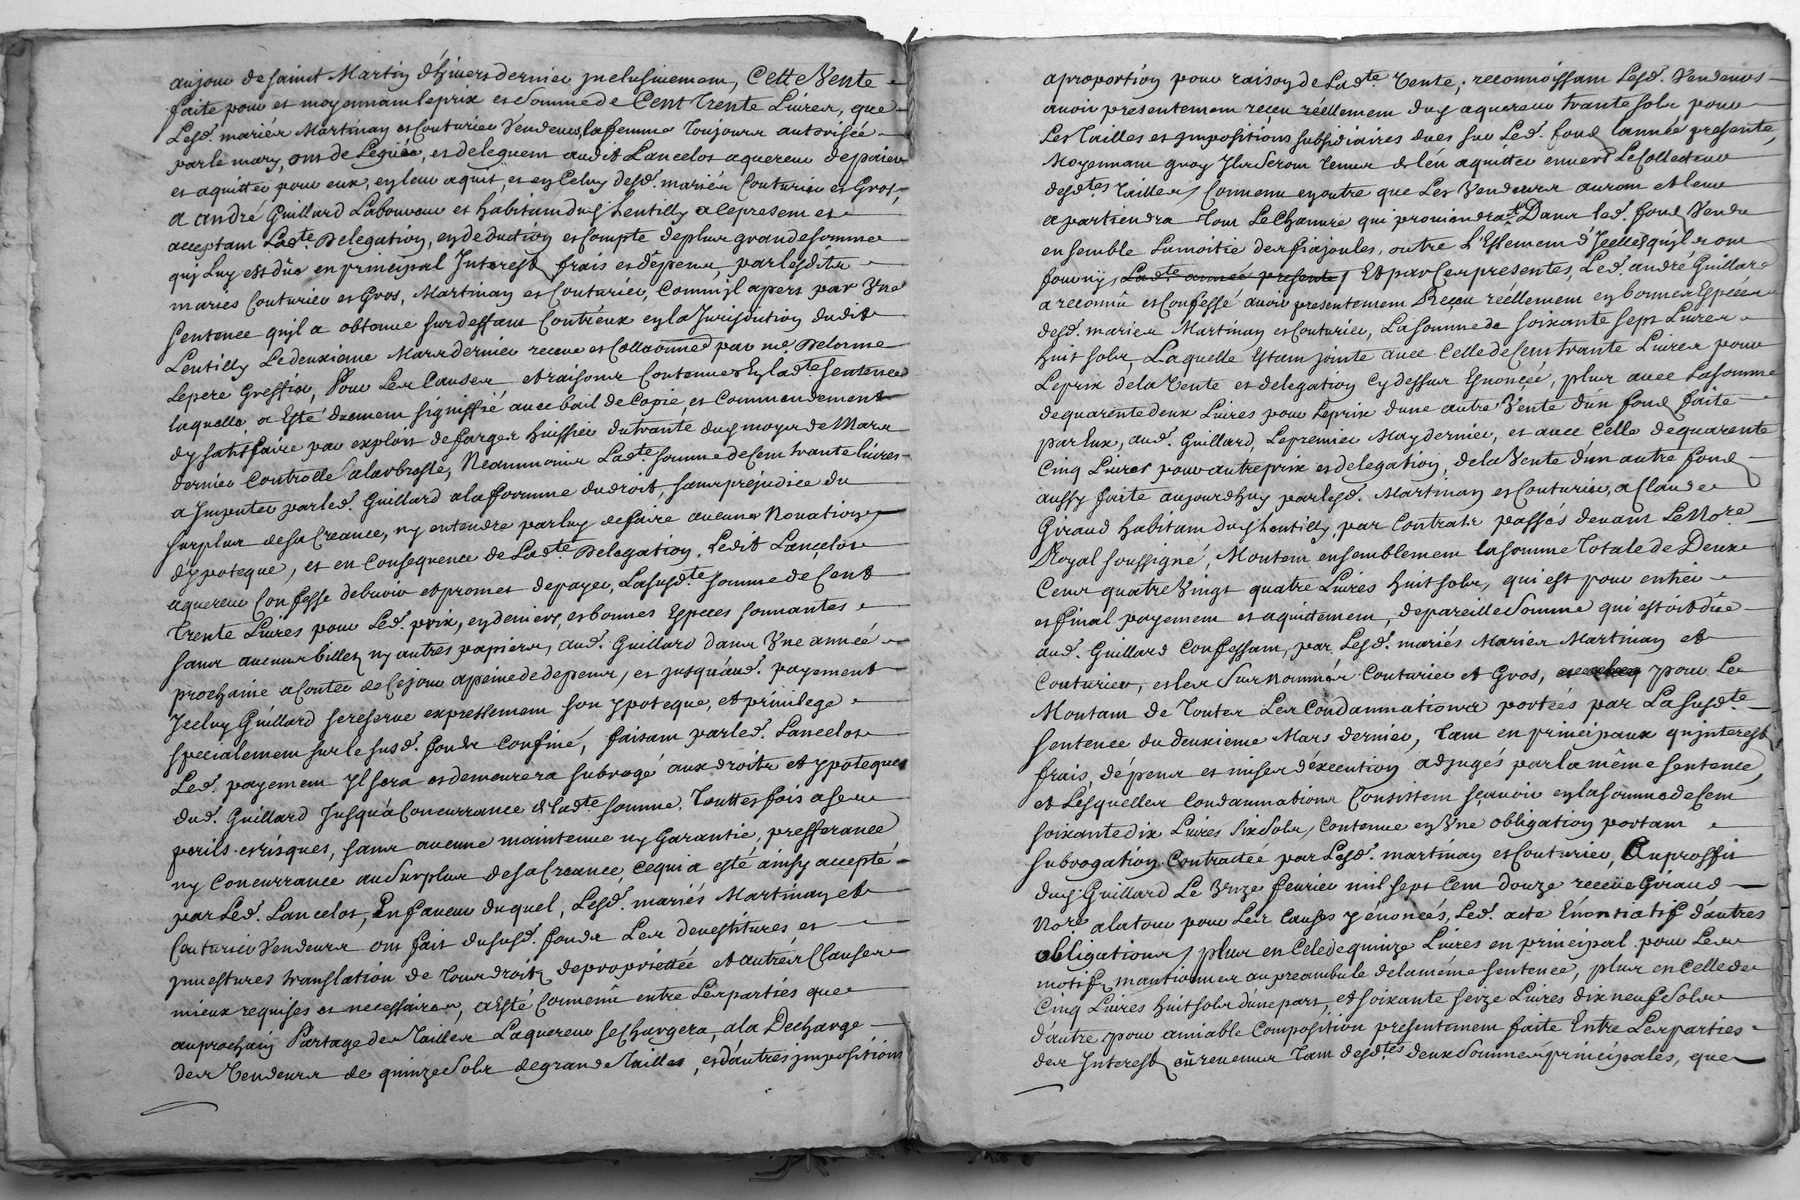 aujour de saint Martin d'hivers dernier inclusivement, Cette Vente
faite pour et moyennant le prix et somme de Cent Trente Livres, que
Lesd. mariés Martinay et Couturier Vendeurs, la femme Toujours autorisée
par le mary, ont de Legüée, et deleguent audit Lancelot aquereur de paier
et aquitter pour eux, en leur aquit, et en Celuy desd. mariés Couturier et Gros,
a andré Guillard Laboureur et habitant dud. Lentilly a ce present et
acceptant Ladte. Delegation, en deduction et Compte de plus grande somme
qui Luy est dûe en principal Interest frais et dépens, par lesdits
mariés Couturier et Gros, Martinay et Couturier, Comm'jl apert par Vne
Sentence qu'jl a obtenue sur deffaut Contr'eux en la Jurisdiction dudit
Lentilly Le deuxieme Mars dernier receue et Collationnée par me. Delorme
Lepere Greffier, Pour Les Causes et raisons Contenues En ladte. sentence
laquelle a Esté duement signiffié avec bail de Copie, et Commendement
dy satisfaire par exploit de farges huissier du trante dud. moys de Mars
dernier Controllé alarbresle, Neanmoins Ladte somme de Cent trante livres
a Imputer par led. Guillard a la forme du droit, sans préjudice du
surplus de sa Creance, ny entendre par luy de faire aucune Novation
dypoteque, et en Consequence de Ladte. Delegation, Ledit Lancelot
aquereur Confesse debvoir et promet de payer, La susdte. somme de Cent
Trente Livres pour Led. prix, en deniers, et bonnes Especes sonnantes
sans aucuns billets ny autres papiers, aud. Guillard dans Vne année
prochaine a Conter de Ce jour a peine de depens, et jusqu'aud. payement
Jceluy Guillard se reserve expressement son ypoteque, et privilege
specialement sur le susd. fonds Confiné, faisant par led. Lancelot
Led. payement jl sera et demeurera subrogé aux droits et ypoteques
dud. Guillard Jusqu'a Concurrance de ladte somme. Touttes fois a ses
perils et risques, sans aucune maintenue ny Garantie, prefferance
ny Concurrance au Surplus de sa Creance, Ce qui a esté ainsy accepté
par Led. Lancelot, En faveur duquel, Lesd. mariés Martinay et
Couturier Vendeurs ont fait du susd. fonds Les devestitures et
jnvestures translation de Tous droits de propriettée et autres Clauses
mieux requises et necessaires, a Esté Convenû entre Les parties que
au prochain Partage des Tailles Laquereur se Chargera, a la Decharge
des Vendeurs de quinze Sols de grande Tailles, et d'autres jmpositions
a proportion pour raison de Ladte. Vente; reconnoissant Lesd. Vendeurs
avoir presentement reçeu réellement dud. aquereur trante sols pour
Les Tailles et jmpositions subsidiaires dues sur Led. fond lannée presente,
Moyennant quoy Jls Seront Tenus de l'en aquitter envers Le Collecteur
desdtes. Tailles, Convenu en outre que Les Vendeurs auront et leur
apartiendra Tout Le Chanvre qui proviendrat. Dans led. fond Vendu
ensemble la moitié des fiajoules, outre L'Essement d'Jcelles qu'jls ont
fourny, Ladte année presente, Et par Ces presentes, Led. andré Guillard
a reconnû et Confessé avoir presentement Reçeu réellement en bonnes Especes
desd. mariés Martinay et Couturier, La somme de soixante sept Livres
huit sols, Laquelle Estant jointe avec Celle de Cent trante Livres pour
Le prix de la Vente et delegation Cy dessus Enoncée, plus avec la somme
de quarente deux Livres pour Le prix dune autre Vente d'un fond faite
par Eux, aud. Guillard, Le premier May dernier, et avec Celle de quarente
Cinq Livres pour autre prix et delegation, de la Vente d'un autre fond
aussy faite aujourdhuy par lesd. Martinay et Couturier, a Claude
Giraud habitant dud. Lentilly, par Contrats passés devant Le Nore.
Royal soussigné, Montent ensemblement la somme Totale de Deux
Cens quatre Vingt quatre Livres huit sols, qui est pour entier
et final payement et aquittement, de pareille Somme qui estoit dûe
aud. Guillard Confessant, par Lesd. mariés Mariés Martinay et
Couturier, et les Surnommés Couturier et Gros, pour Le
Montant de Toutes Les Condannations portées par La susdte
sentence du deuxieme Mars dernier, Tant en principaux qu'jnterest
frais, dépens et mises d'éxecution adjugés par la même sentence,
et Lesquelles Condannations Consistent sçavoir en la somme de Cent
soixante dix Livres Six Sols, Contenue en Vne obligation portant
subrogation Contractée par Lesd. martinay et Couturier, Au proffit
dud. Guillard Le Vnze fevrier mil sept Cent douze receüe Giraud
Nore. a la tour pour Les Causes y énoncés, Led. acte Enontiatif d'autres
obligations, plus en Celle de quinze Livres en principal pour Les
motifs mantionnes au preambule de la méme sentence, plus en Celle de
Cinq Livres huit sols d'une part, et soixante seize Livres dix neuf Sols
d'autre pour amiable Composition presentement faite Entre Les parties
des Interest et revenus Tant desdtes. deux Sommes principales, que